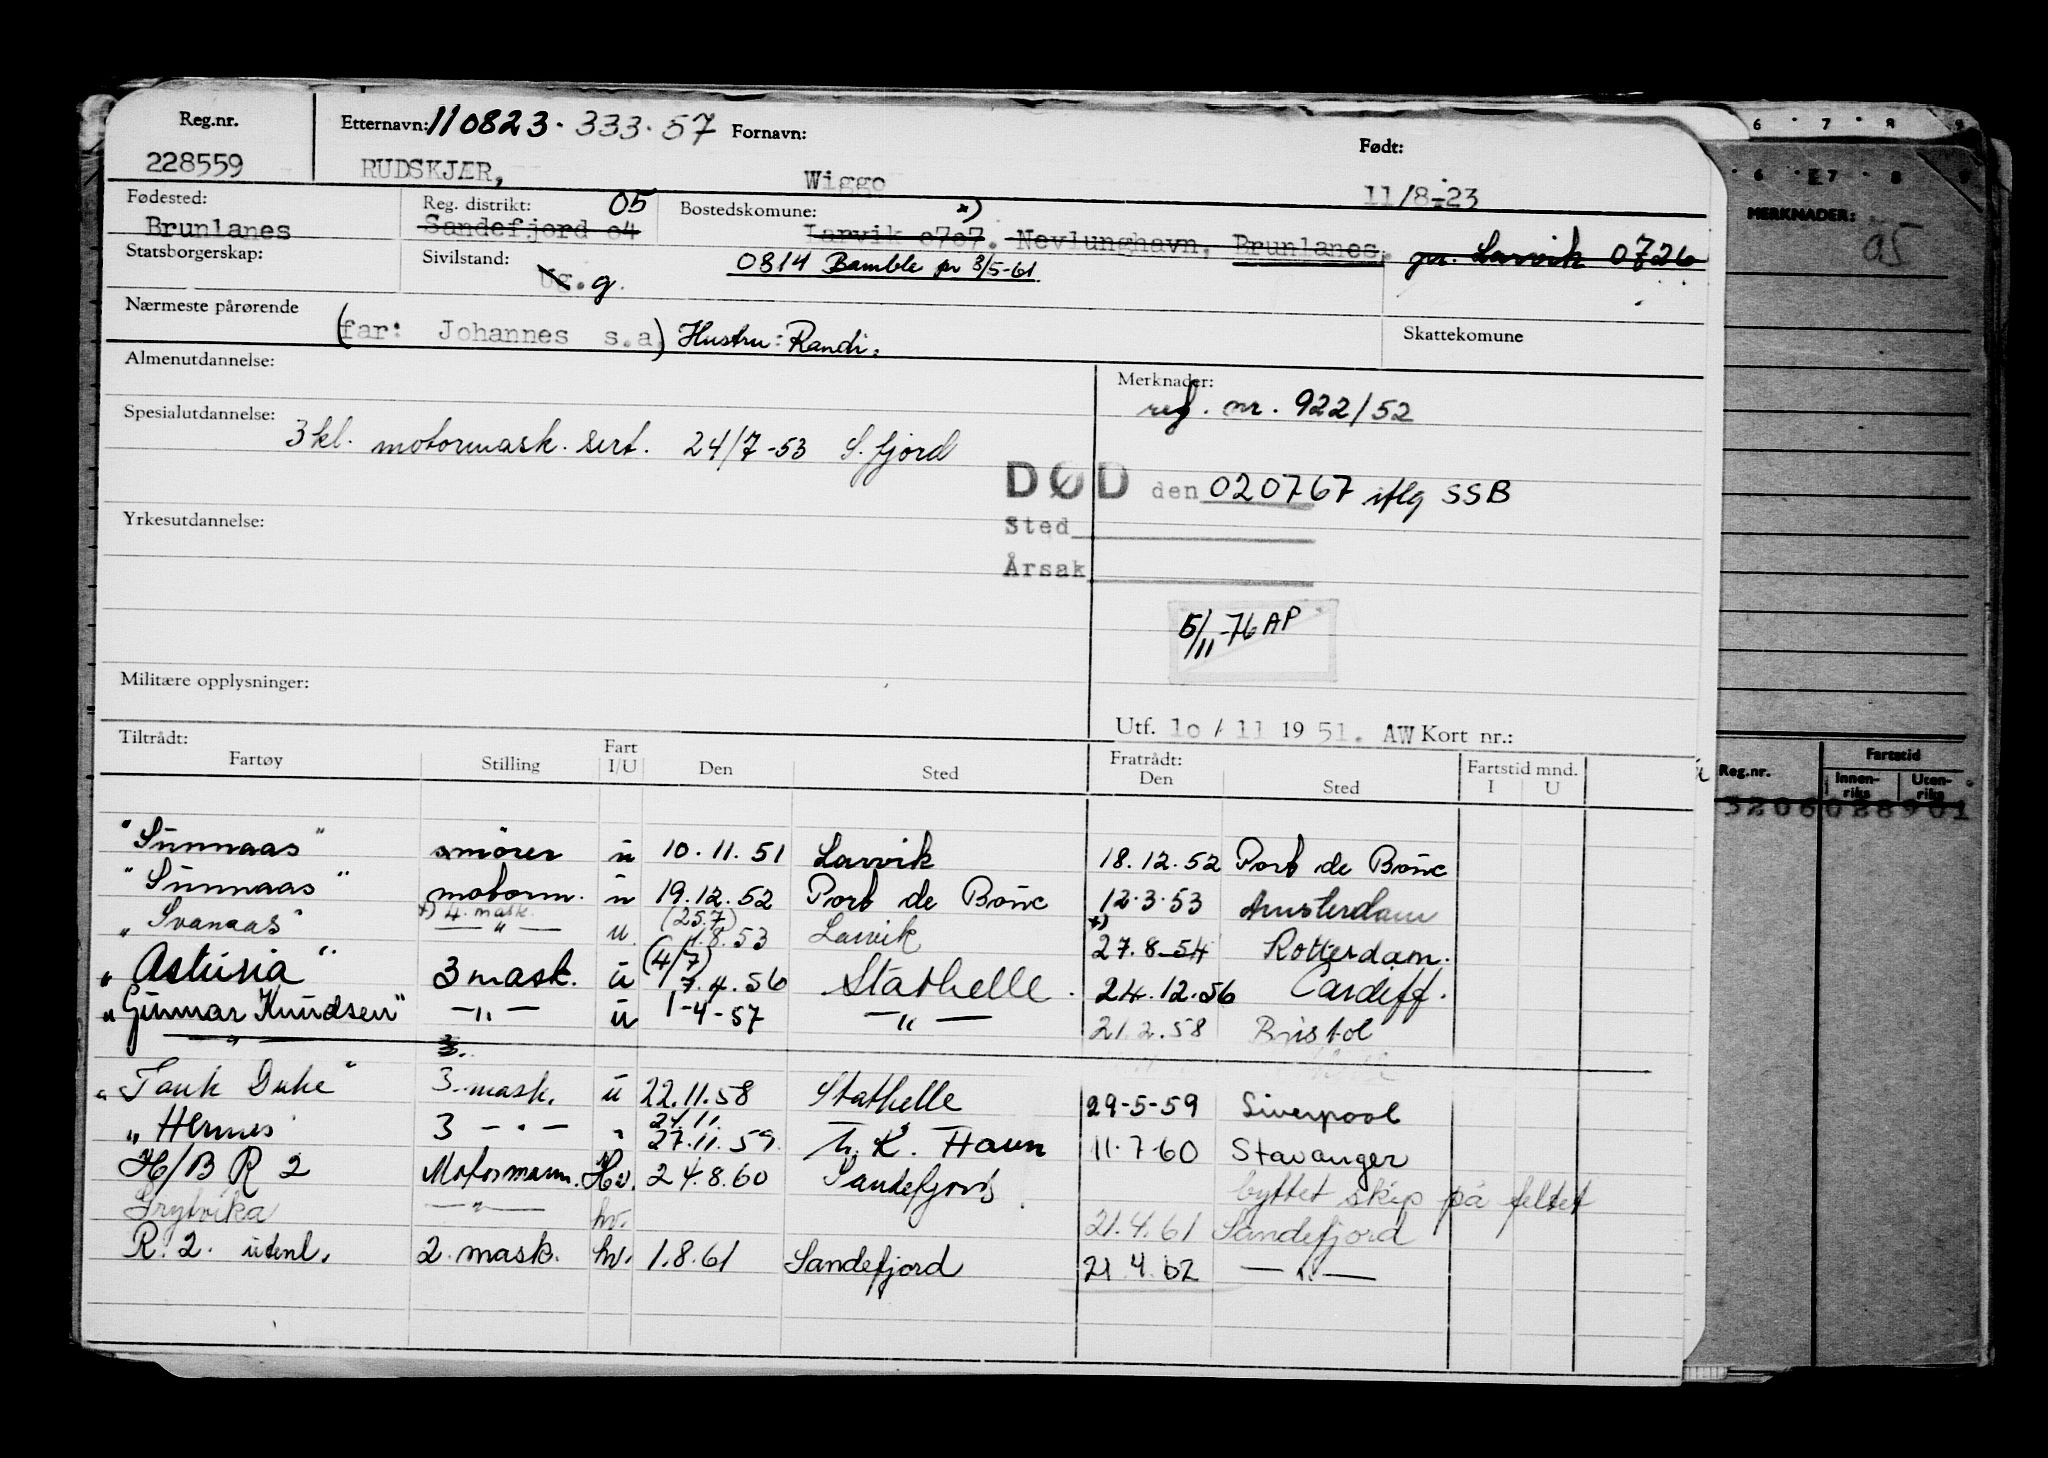 Reg.nr. Etternavn: 110823.333.57 Fornavn: Født:
228559 RUDSKJÆR, Wiggo 11/8-23
Fødested: Reg. distrikt: 05 Bostedskomune: x)
Brunlanes Sandefjord o4 Larvik o7o7. Nevlunghavn, Brunlanes, pr. Larvik 0726
Statsborgerskap: Sivilstand: 0814 Bamble pr 3/5-61
Ug. g.
Nærmeste pårørende (far: Johannes s.a) Hustru: Randi. Skattekomune
Almenutdannelse: Merknader:
reg. nr. 922/52
Spesialutdannelse: 3 kl. motormask. sert. 24/7-53 S.fjord
DØD den 020767 iflg SSB
Sted
Årsak
Yrkesutdannelse:
5/11-76 AP
Militære opplysninger:
Utf. 1o / 11 19 51. AW Kort nr.:
Tiltrådt: Fratrådt:
Fartøy Stilling Fart I/U Den Sted Den Sted Fartstid mnd. I U
"Sunnaas" smörer u 10.11.51 Larvik 18.12.52 Port de Bouc
"Sunnaas" motorm. u 19.12.52 Port de Bouc 12.3.53 Amsterdam
"Svanaas" x) 4. mask. — " — u (25.7) 1.8.53 Larvik x) 27.8.54 Rotterdam.
"Asturia" 3 mask. u (4/7) 7.4.56 Stathelle. 24.12.56 Cardiff.
"Gunnar Knudsen" — " — u 1-4-57 — " — 21.2.58 Bristol
— " — 3.
"Tank Duke" 3. mask. u 22.11.58 Stathelle 29-5-59 Liverpool
"Hermes 3 — " — " 21.11. 27.11.59. Havn 11.7.60 Stavanger
H/B R 2 Motormann. Hv. 24.8.60 Sandefjord. byttet skip på feltet
Grytvika — " — hv. 21.4.61 Sandefjord
R. 2. utenl. 2. mask. hv. 1.8.61 Sandefjord 21.4.62 — " —
6 7 8 9
6 7 8 9
MERKNADER: 05
Reg.nr. Fartstid
Innen-riks Uten-riks
3206028901